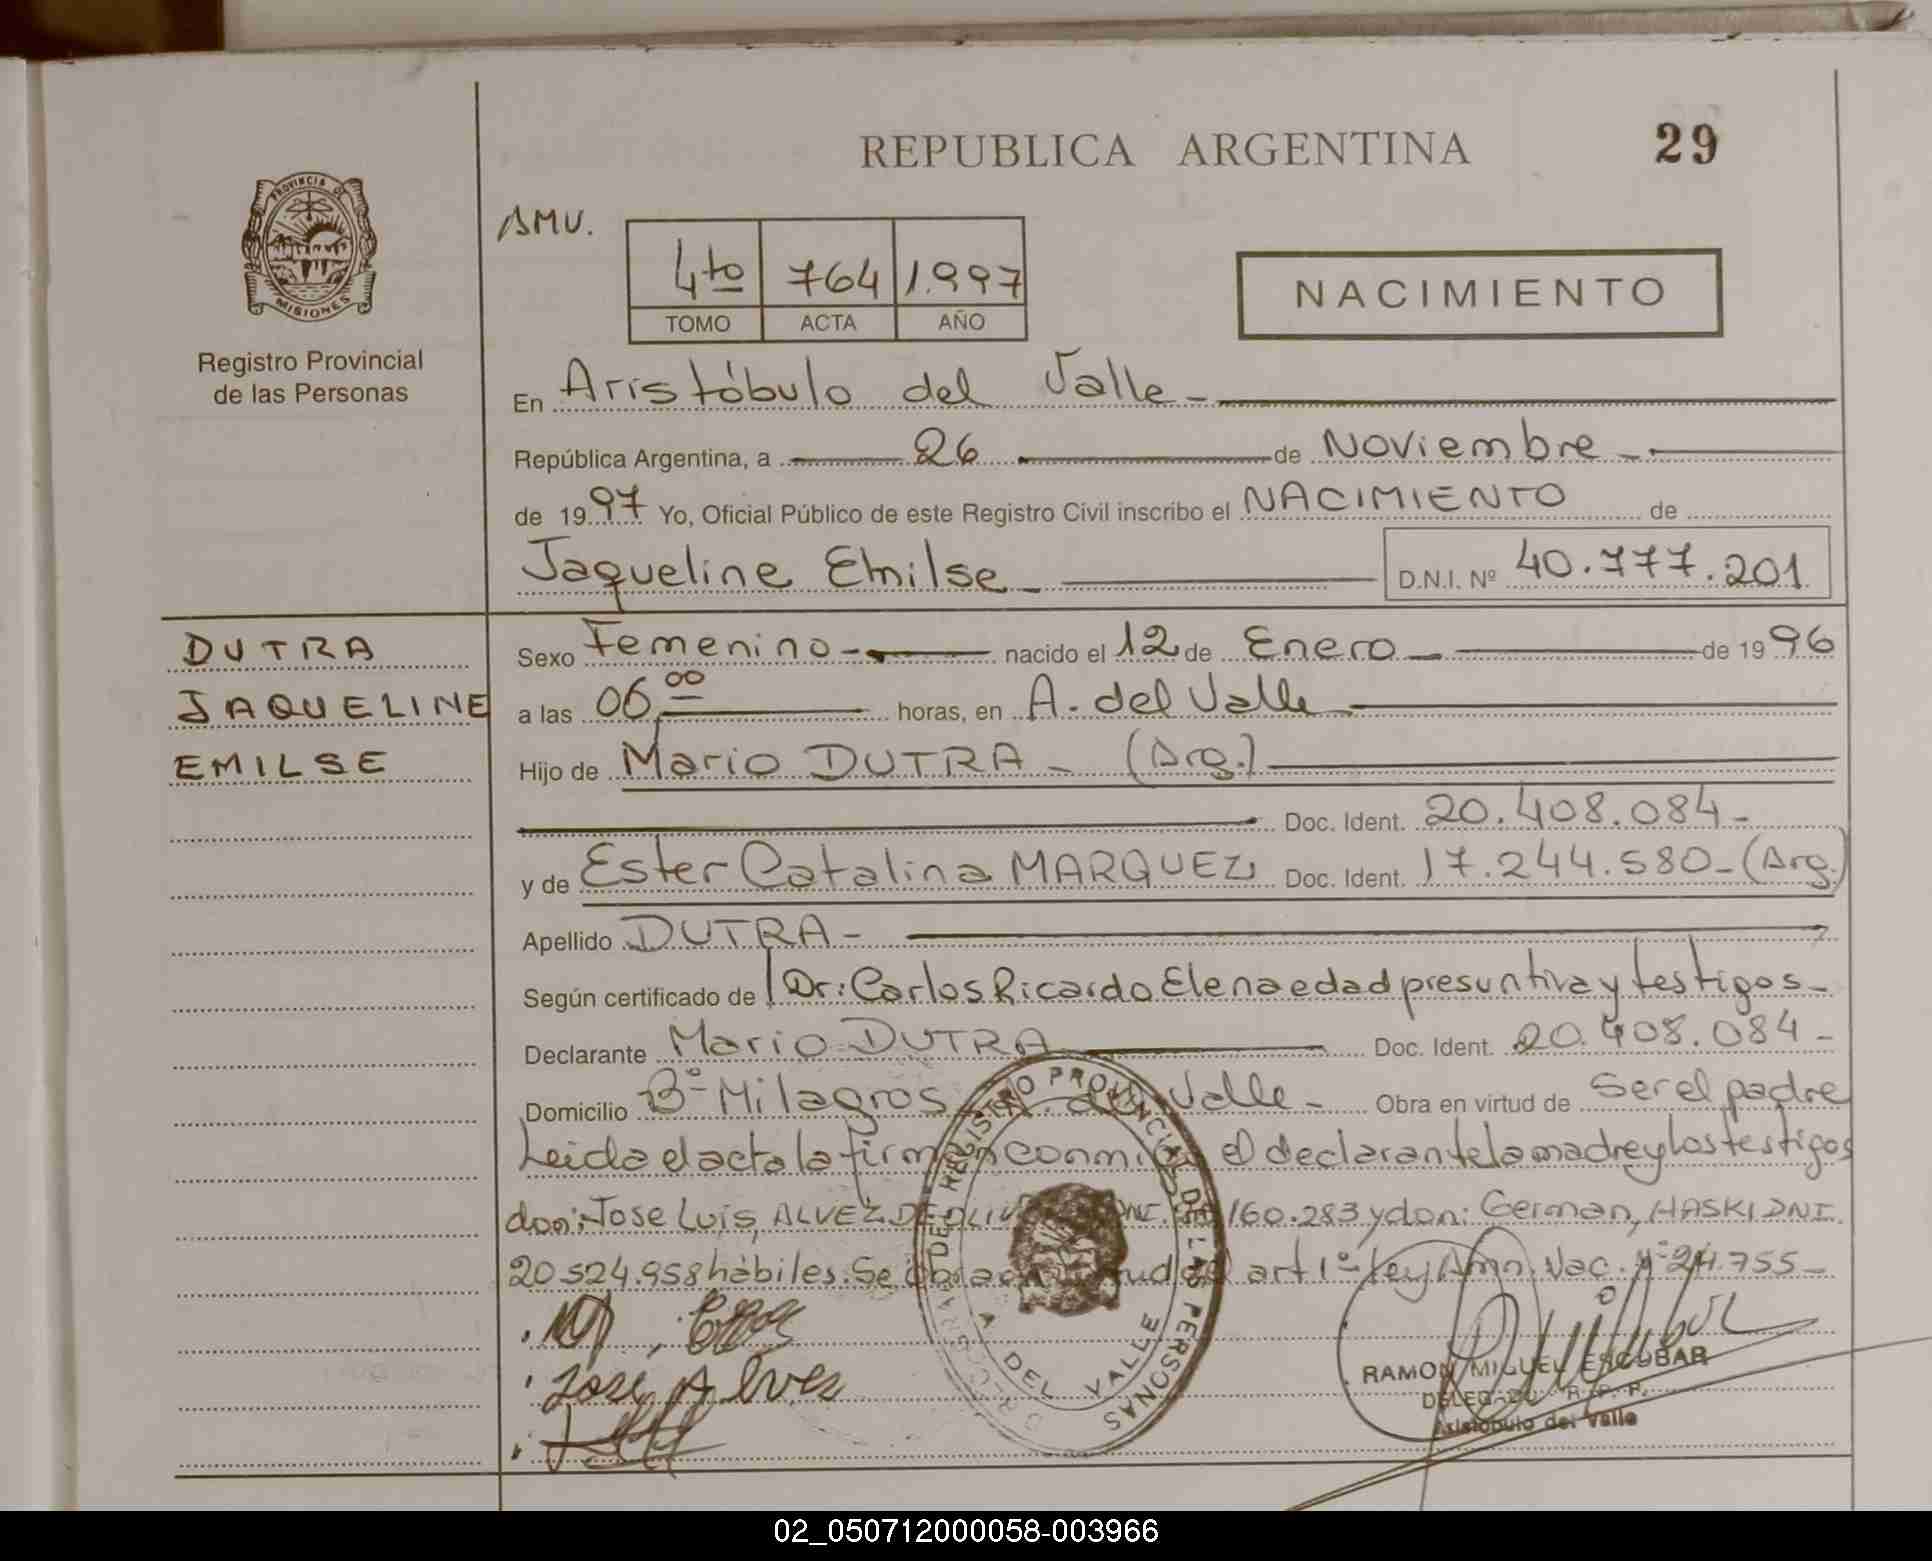 REPUBLICA ARGENTINA
29
PROVINCIA DE
MISIONES
Registro Provincial
de las Personas
AMV.
4to 764 1.997
TOMO ACTA AÑO
NACIMIENTO
En Aristóbulo del Valle
República Argentina, a 26 de Noviembre
de 1997 Yo, Oficial Público de este Registro Civil inscribo el NACIMIENTO de
Jaqueline Emilse D.N.I. Nº 40.777.201
DUTRA
JAQUELINE
EMILSE
Sexo Femenino nacido el 12 de Enero de 1996
a las 06,00 horas, en A. del Valle
Hijo de Mario DUTRA (Arg.)
Doc. Ident. 20.408.084
y de Ester Catalina MARQUEZ Doc. Ident. 17.244.580 (Arg.)
Apellido DUTRA
Según certificado de Dr: Carlos Ricardo Elena edad presuntiva y testigos
Declarante Mario DUTRA Doc. Ident. 20.408.084
Domicilio Bº Milagros A. del Valle Obra en virtud de Ser el padre
Leida el acta la firman conmigo el declarante la madre y los testigos
don: Jose Luis, ALVEZ DE DNI. 160.283 y don: German, HASKI DNI.
20.524.958 hábiles. Se art 1º Ley Nac. Nº 24.755
Jose Alves
REGISTRO PROVINCIAL DE LAS PERSONAS
A DEL VALLE
RAMON MIGUEL ESCOBAR
DELEGADO R. P. P.
Aristobulo del Valle
02_050712000058-003966